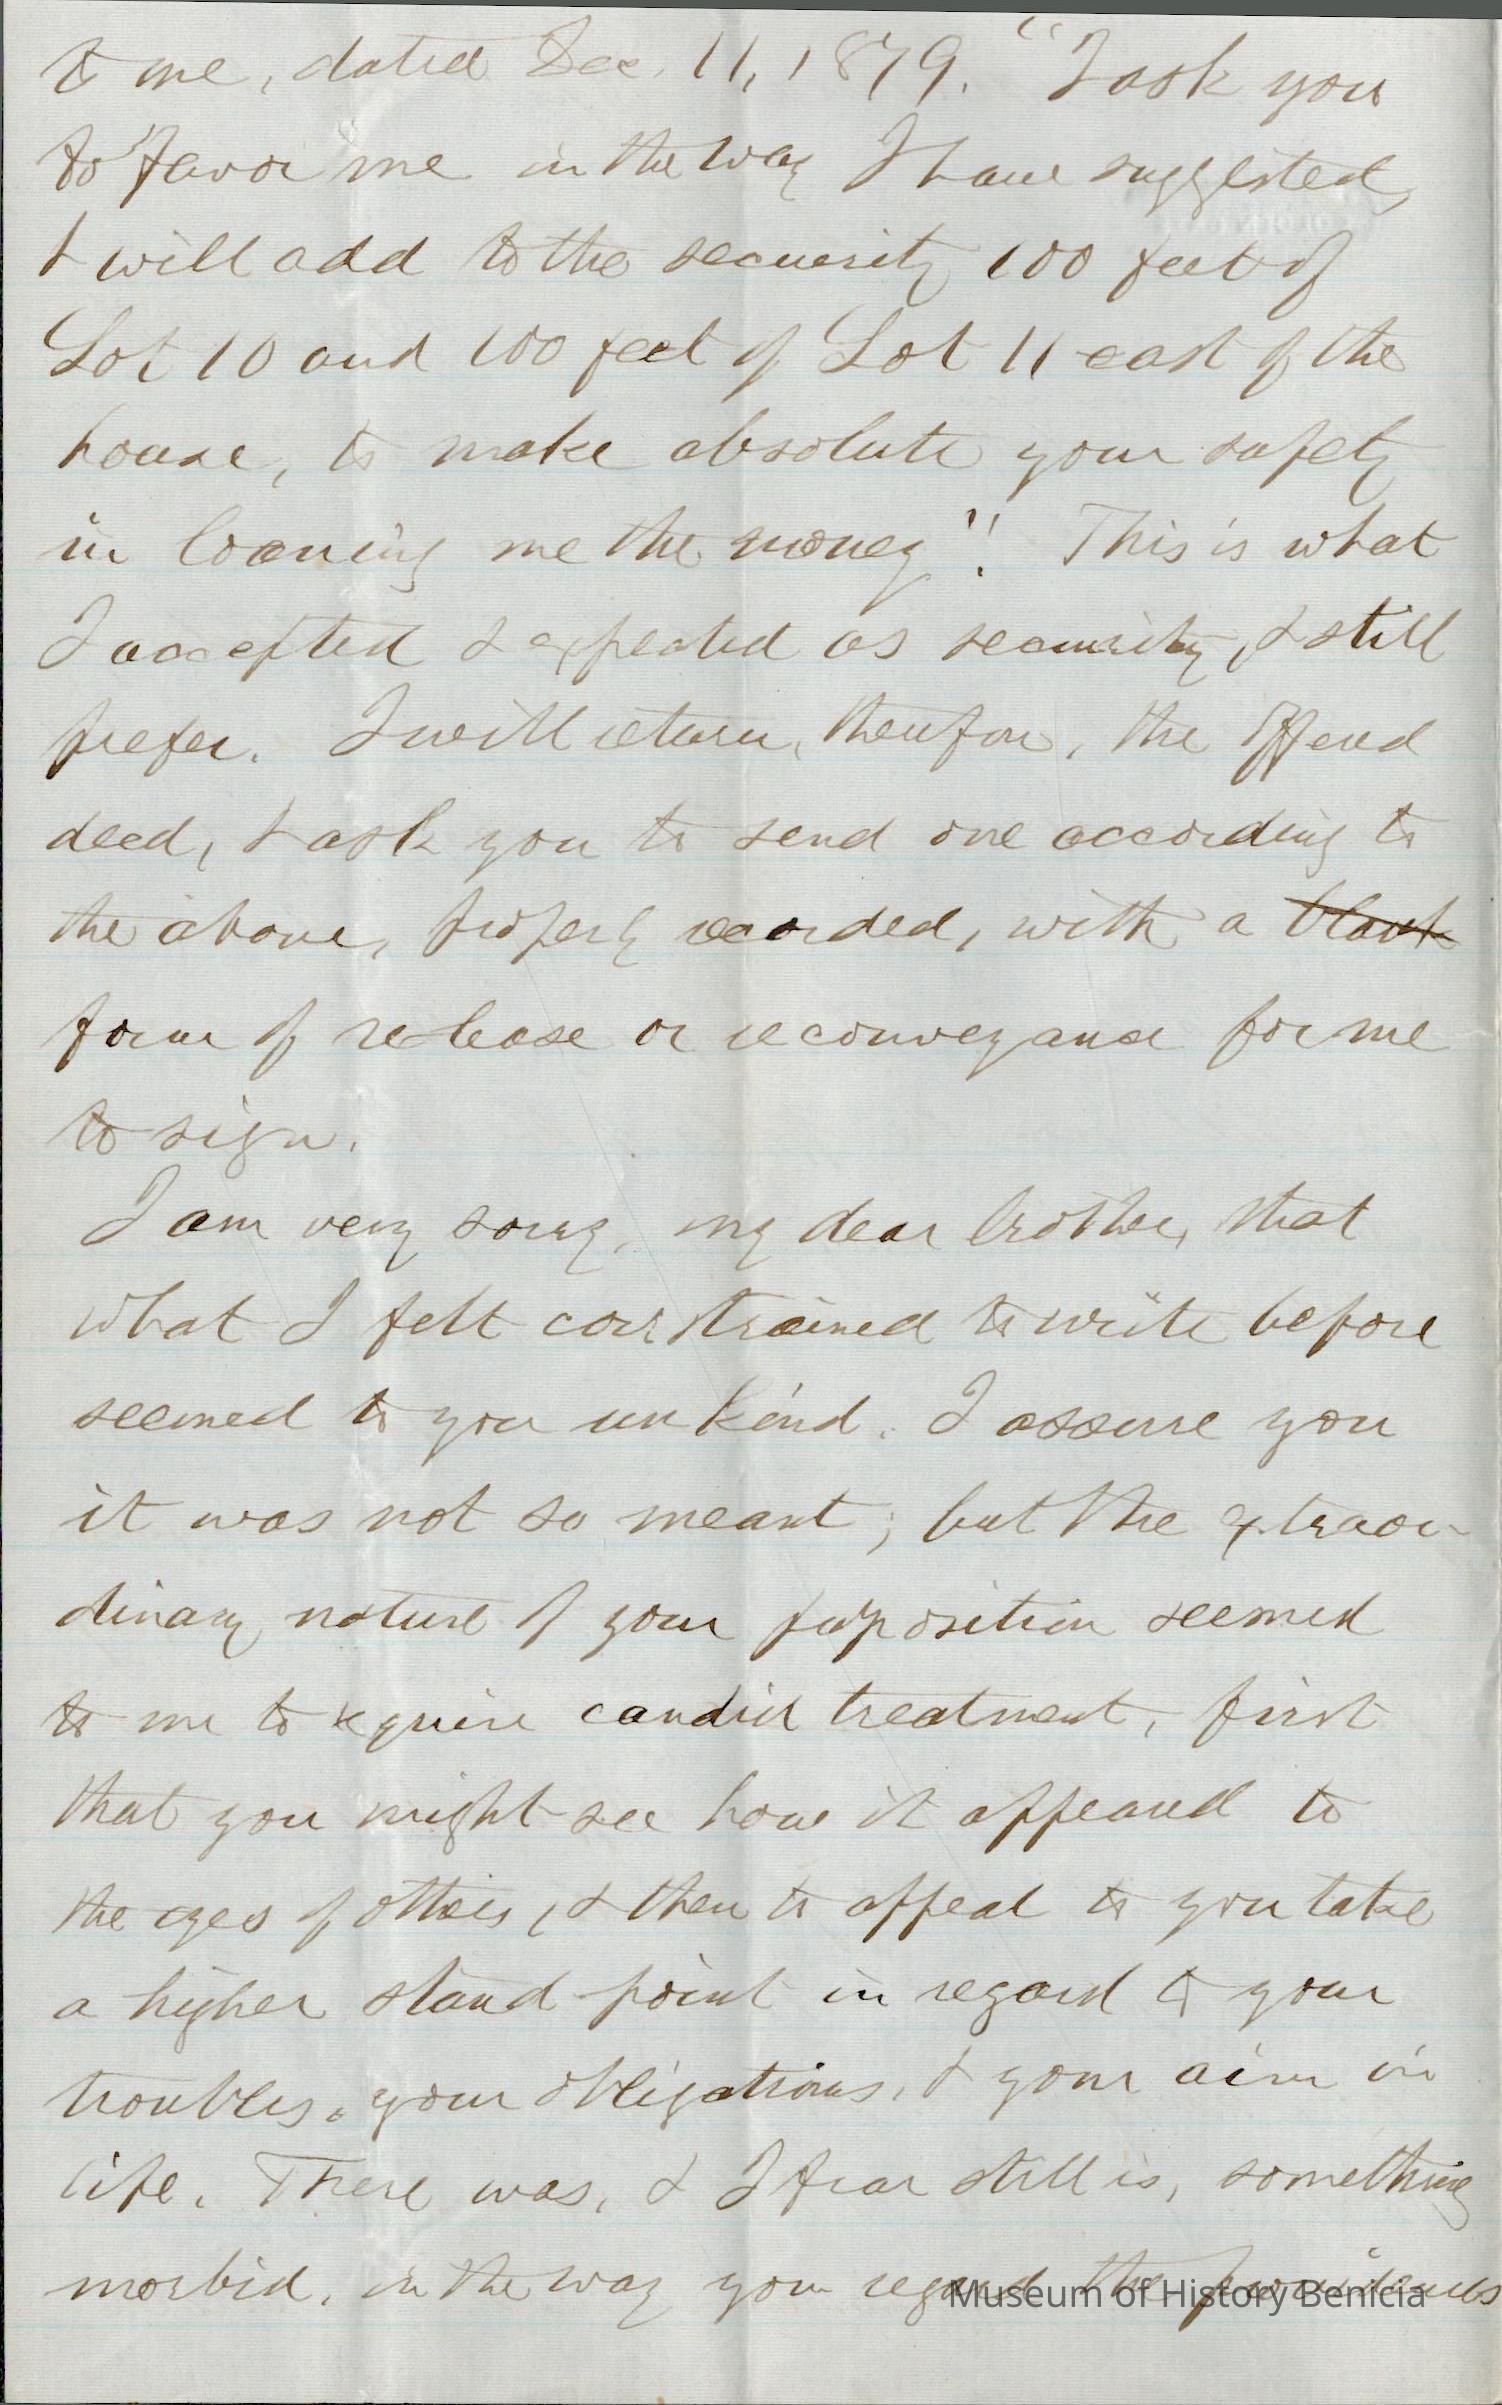 to me, dated Dec. 11, 1879. "I ask you
to favor me in the way I have suggested,
& will add to the security 100 feet of
Lot 10 and 100 feet of Lot 11 east of the
house, to make absolute your safety
in loaning me the money". This is what
I accepted & expected as security, & still
prefer. I will return, therefore, the offered
deed, & ask you to send one according to
the above, properly recorded, with a blank
form of release or reconveyance for me
to sign.
I am very sorry, my dear brother, that
what I felt constrained to write before
seemed to you unkind. I assure you
it was not so meant; but the extraor-
dinary nature of your proposition seemed
to me to require candid treatment, first
that you might see how it appeared to
the eyes of others, & then to appeal to you take
a higher stand point in regard to your
troubles, your obligations, & your aim in
life. There was, & I fear still is, something
morbid, in the way you regard the providences
Museum of History Benicia